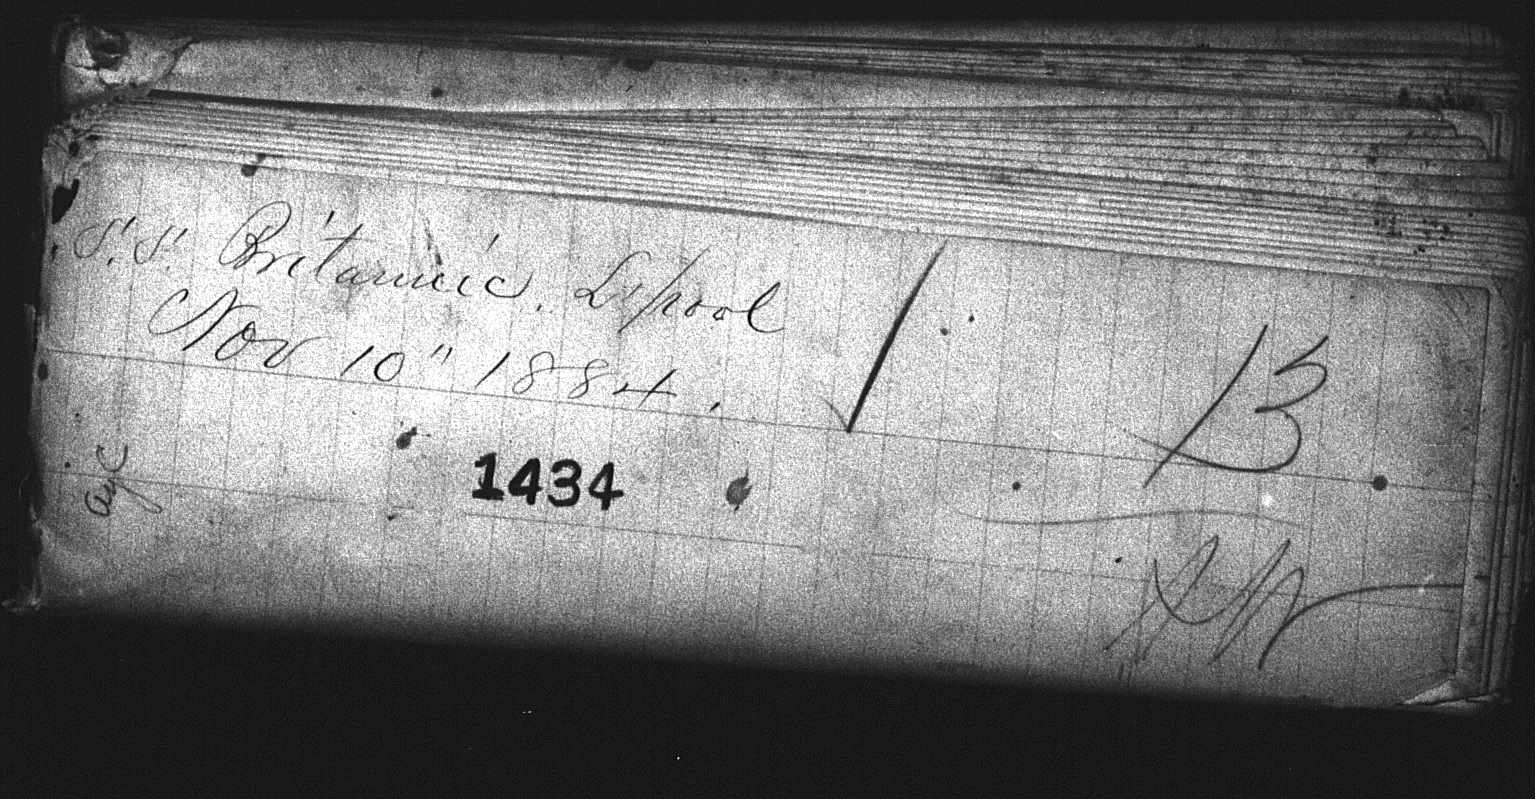 S.S. Britannic. L'pool
Nov 10" 1884.
1434
B
ayc